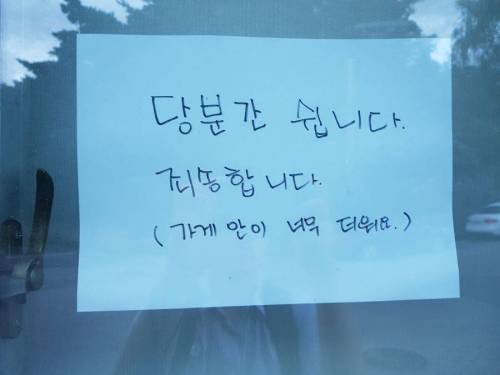 당분간 쉽니다.
죄송합니다.
(가게 안이 너무 더워요.)